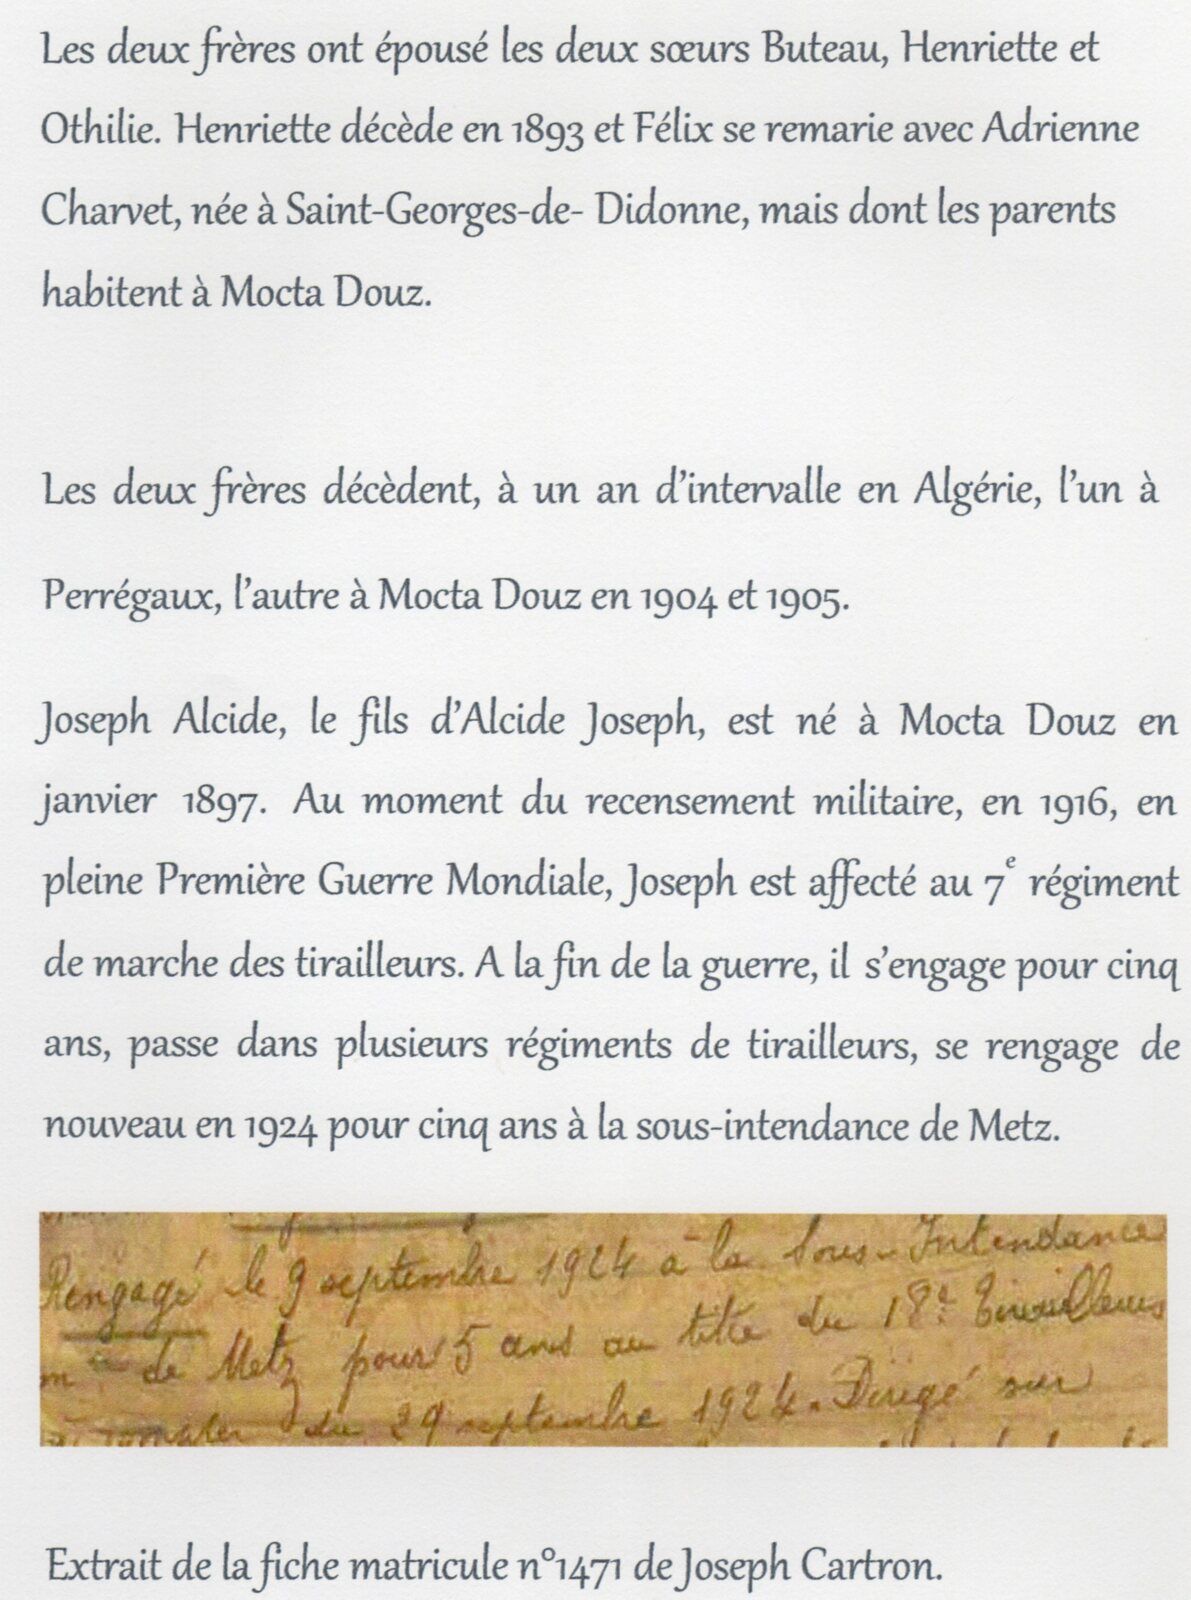 Les deux frères ont épousé les deux sœurs Buteau, Henriette et
Othilie. Henriette décède en 1893 et Félix se remarie avec Adrienne
Charvet, née à Saint-Georges-de- Didonne, mais dont les parents
habitent à Mocta Douz.
Les deux frères décèdent, à un an d'intervalle en Algérie, l'un à
Perrégaux, l'autre à Mocta Douz en 1904 et 1905.
Joseph Alcide, le fils d'Alcide Joseph, est né à Mocta Douz en
janvier 1897. Au moment du recensement militaire, en 1916, en
pleine Première Guerre Mondiale, Joseph est affecté au 7e régiment
de marche des tirailleurs. A la fin de la guerre, il s'engage pour cinq
ans, passe dans plusieurs régiments de tirailleurs, se rengage de
nouveau en 1924 pour cinq ans à la sous-intendance de Metz.
Rengagé le 9 septembre 1924 à la Sous-Intendance
de Metz pour 5 ans au titre du 18e Tirailleurs
du 29 septembre 1924. Dirigé sur
Extrait de la fiche matricule n°1471 de Joseph Cartron.